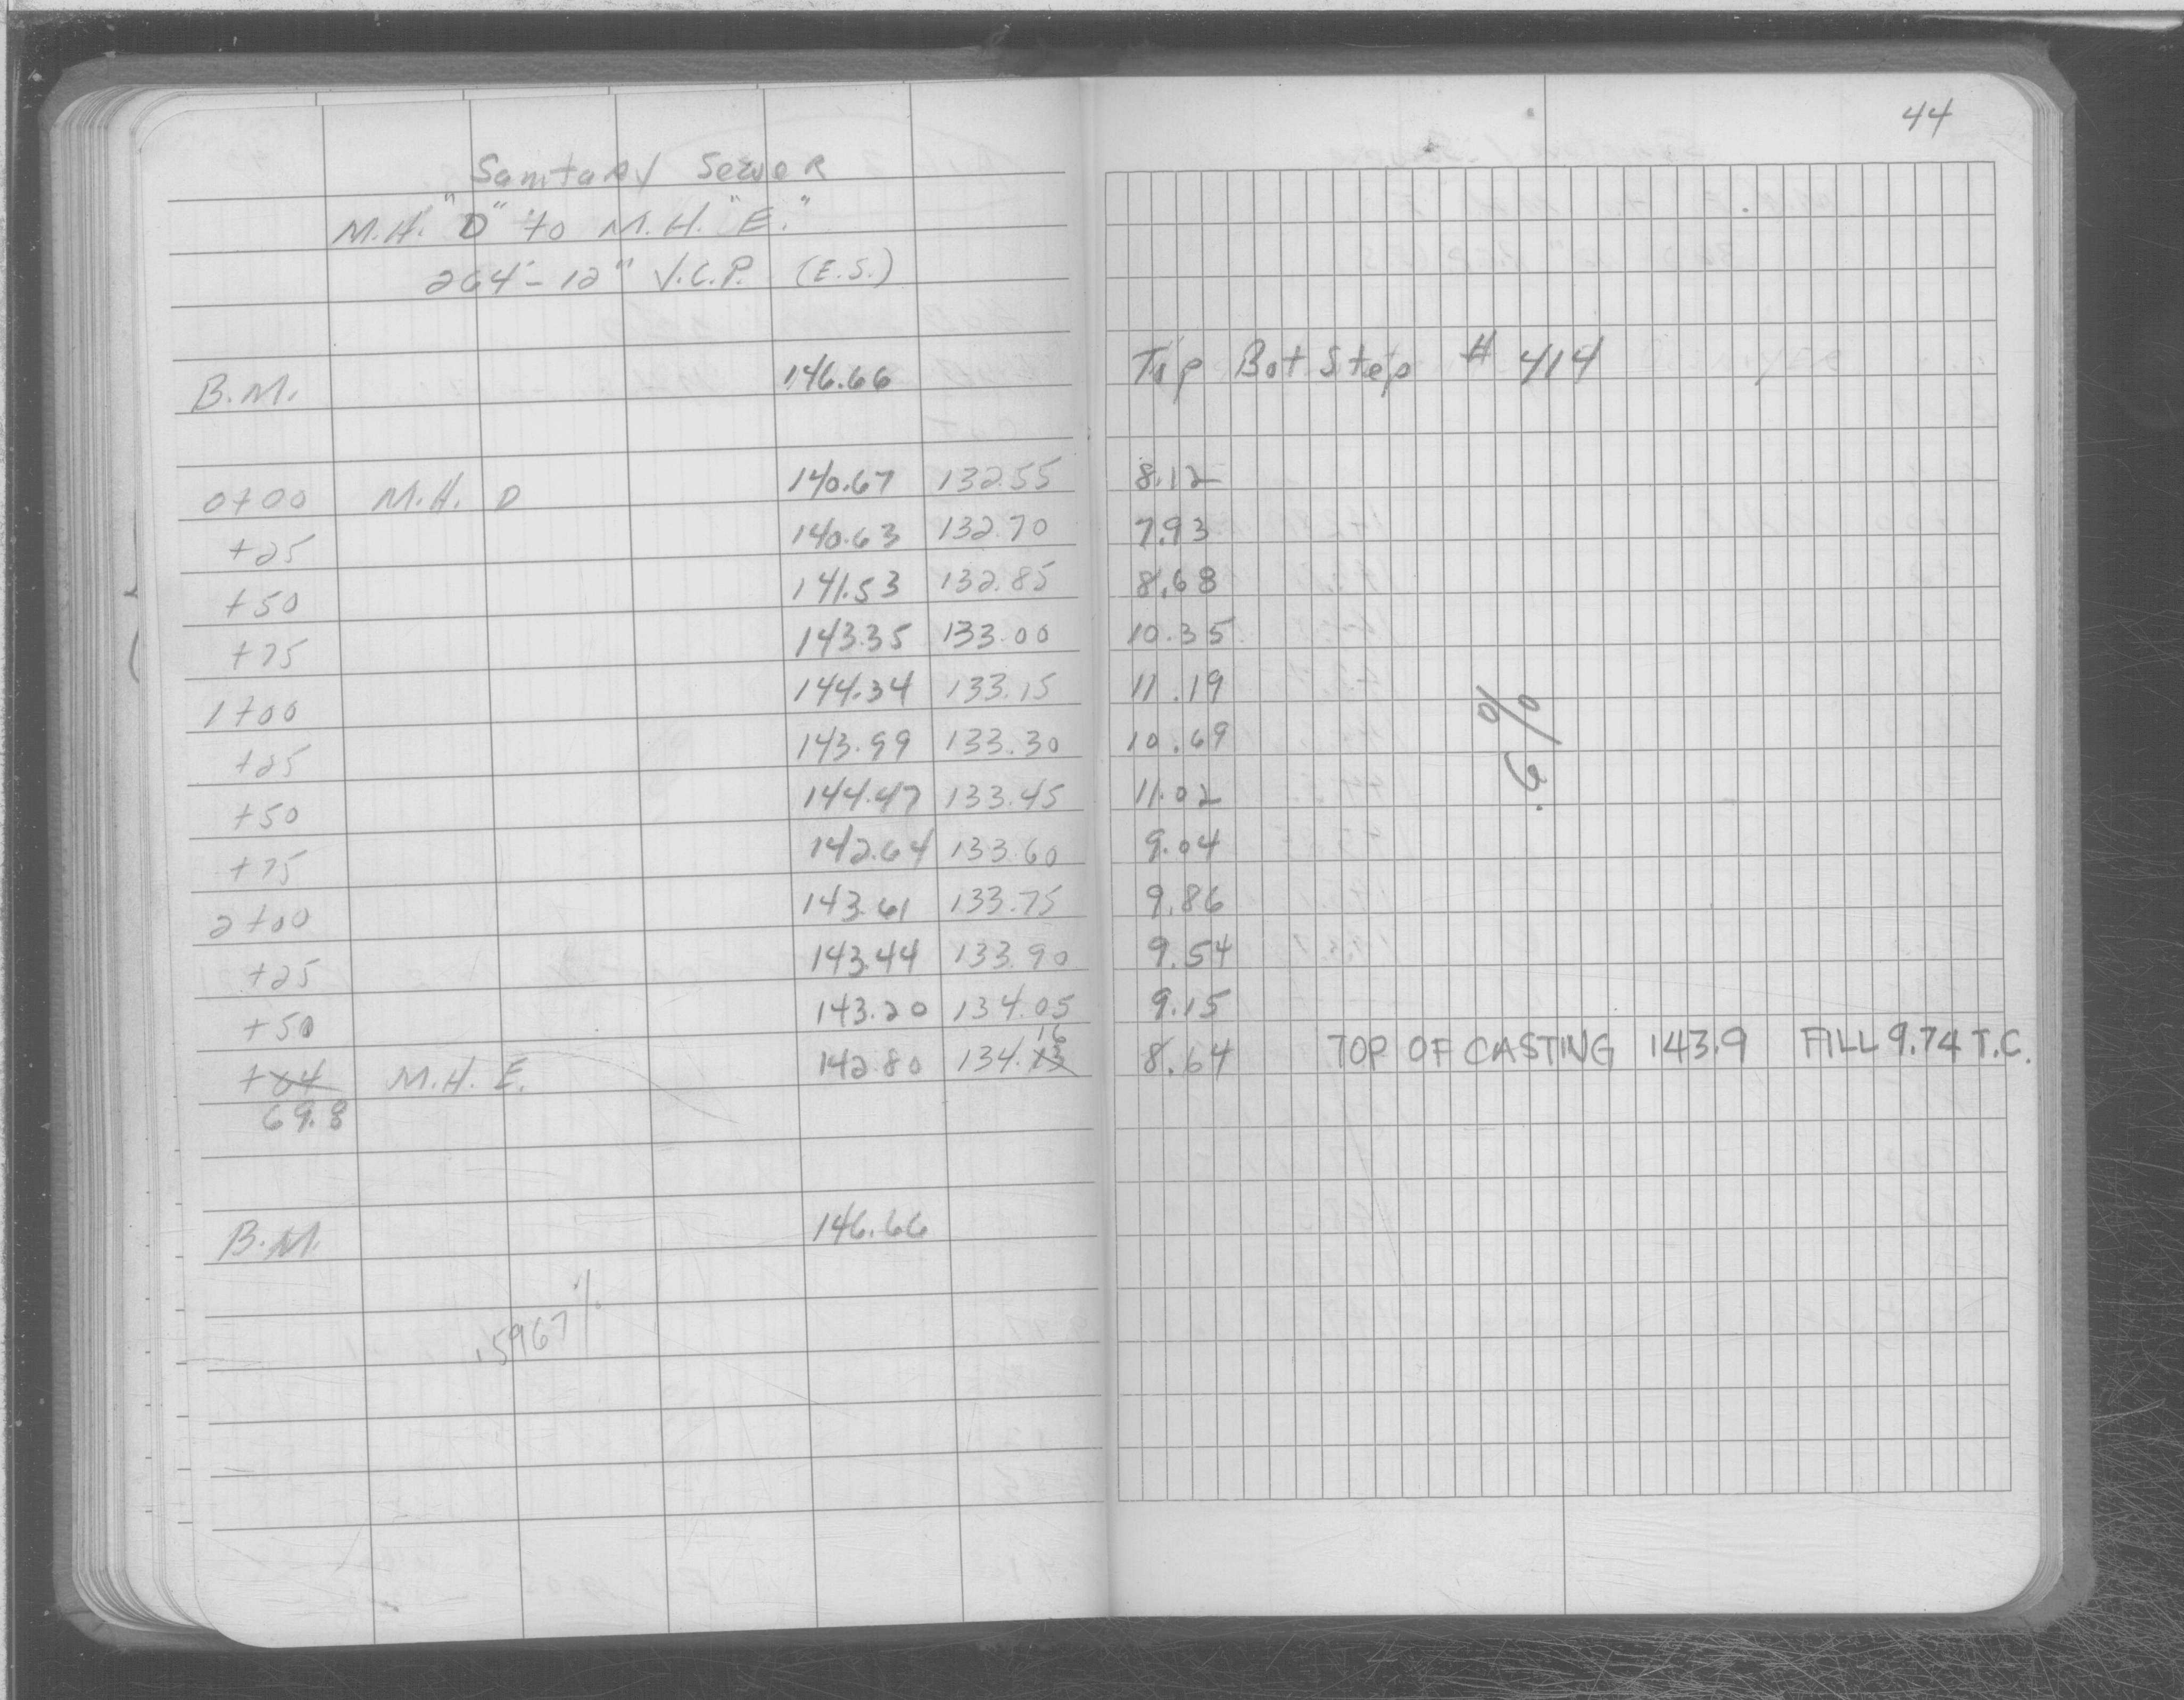 44
Sanitary Sewer
M.H. "D" to M.H. "E."
264' - 12" V.C.P. (E.S.)
B.M. 146.66 Top Bot Step # 414
0+00 M.H. D 140.67 132.55 8.12
+25 140.63 132.70 7.93
+50 141.53 132.85 8.68
+75 143.35 133.00 10.35
1+00 144.34 133.15 11.19
+25 143.99 133.30 10.69
+50 144.47 133.45 11.02
+75 142.64 133.60 9.04
2+00 143.61 133.75 9.86
+25 143.44 133.90 9.54
+50 143.20 134.05 9.15
16
+64 M.H. E. 142.80 134.13 8.64 TOP OF CASTING 143.9 FILL 9.74 T.C.
69.8
.6%
B.M. 146.66
.5967%